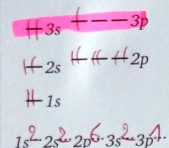 3s 3p
2s 2p
1s
1s² 2s² 2p⁶ 3s² 3p¹.